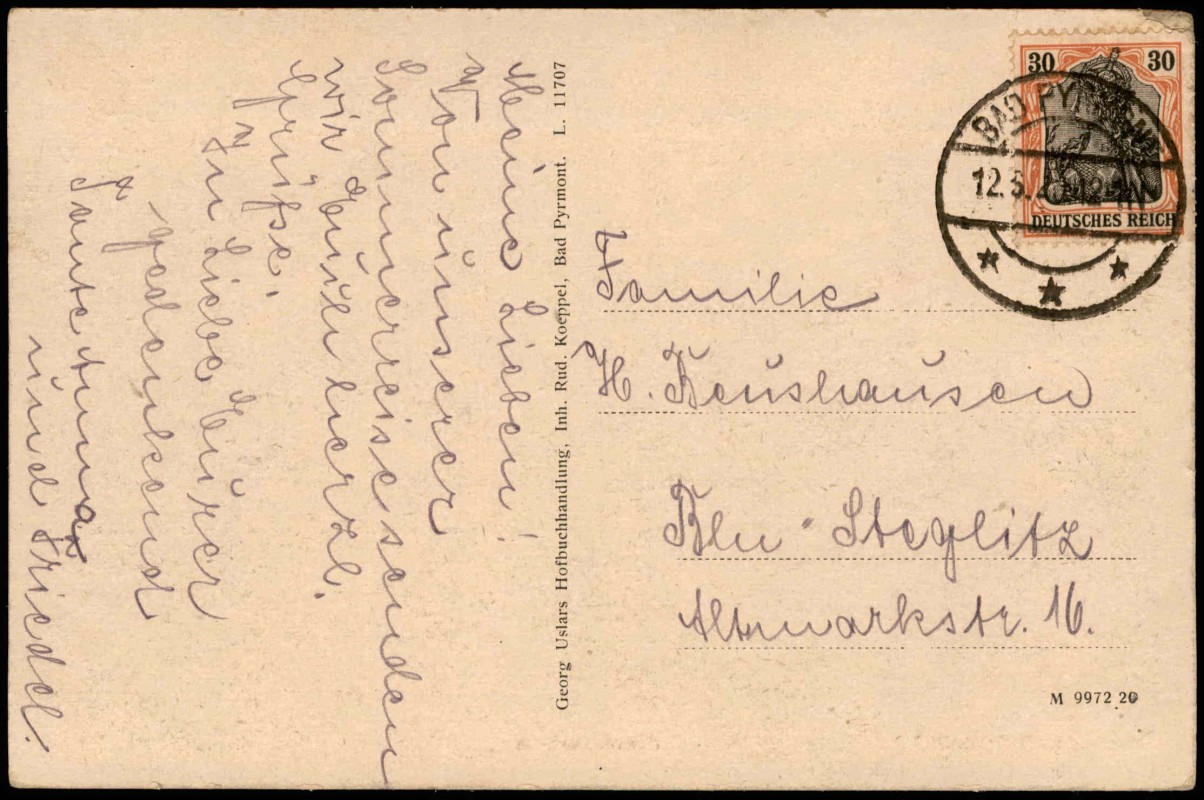 Meine Lieben!
Von unserer
Sommerreise senden
wir Euch herzl.
Grüße.
In Liebe Eurer
gedenkend
Tante Anna
und Friedel.
Georg Uslars Hofbuchhandlung, Inh. Rud. Koeppel, Bad Pyrmont. L. 11707
30 30
DEUTSCHES REICH
BAD PYRMONT
Familie
H. Renshausen
Bln Steglitz
Altmarkstr. 16.
M 9972 20